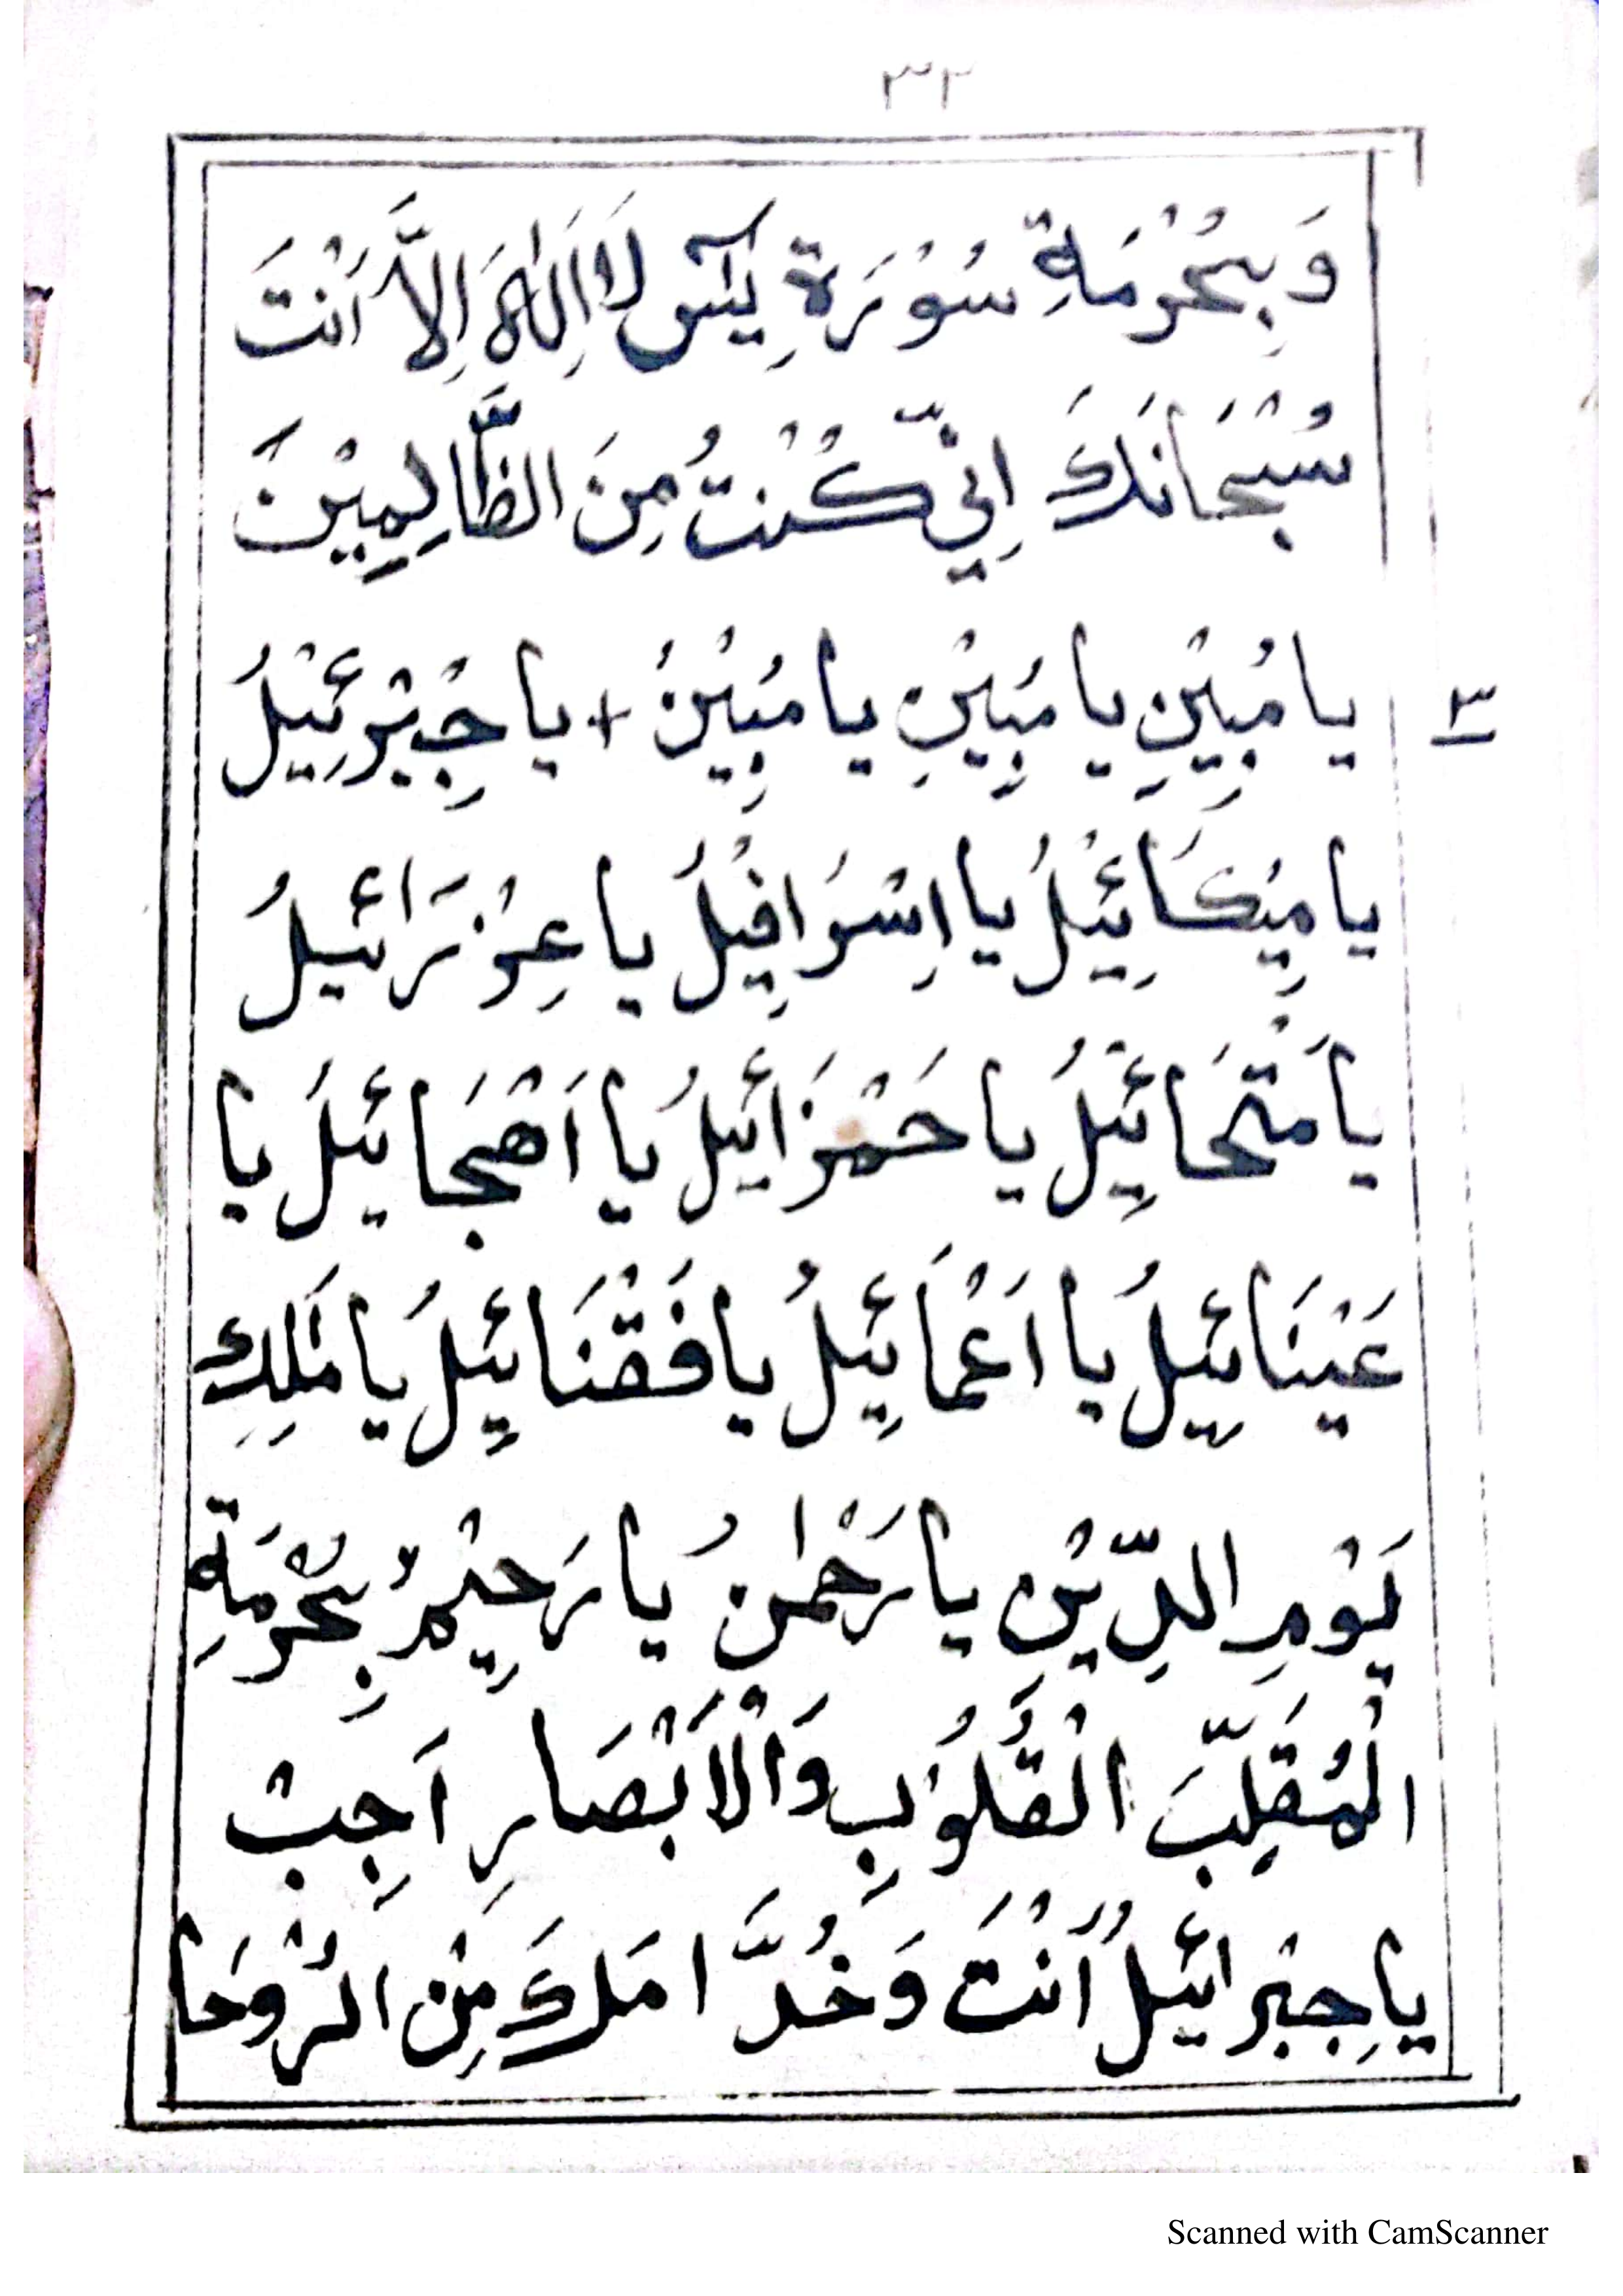 ٣٢
وَبِحُرْمَةِ سُوْرَةِ يٰسٓ لَا اِلٰهَ اِلَّا اَنْتَ
سُبْحَانَكَ اِنِّيْ كُنْتُ مِنَ الظَّالِمِيْنَ
يا مُبِيْنِ يا مُبِيْنِ يا مُبِيْنُ + يا جِبْرَئِيْلُ
٣
يا مِيْكَائِيْلُ يا اِسْرَافِيْلُ يا عِزْرَائِيلُ
يا مَتْحَائِيْلُ يا حَمْزَائِيلُ يا اَهْجَائِيلُ يا
عَيْنَائِيلُ يا اَعْمَائِيلُ يا فَقْنَائِيلُ يا مٰلِكِ
يَوْمِ الدِّيْنِ يا رَحْمٰنُ يا رَحِيْمُ بِحُرْمَةِ
الْمُقَلِّبَ الْقُلُوْبِ وَالْاَبْصَارِ اَجِبْ
يا جِبْرائيلُ اَنْتَ وَخُدَّا مَلَكَ مِنْ الرُّوْحَا
Scanned with CamScanner